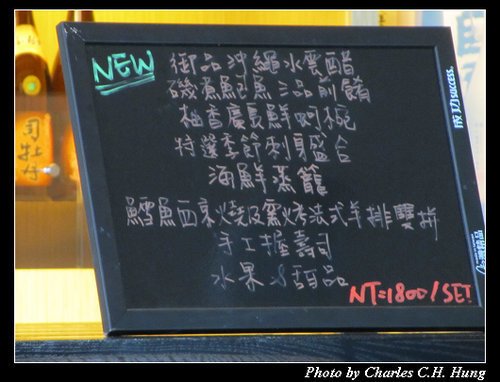 NEW
御品沖繩水雲醋
磯煮鮑魚三品前餚
柚香廣島鮮蚵椀
特選季節刺身盛合
海鮮蒸籠
鱈魚西京燒及窯烤法式羊排雙拼
手工握壽司
水果&甜品
NT=1800/SET
成功 success.
司牡丹
Photo by Charles C.H. Hung